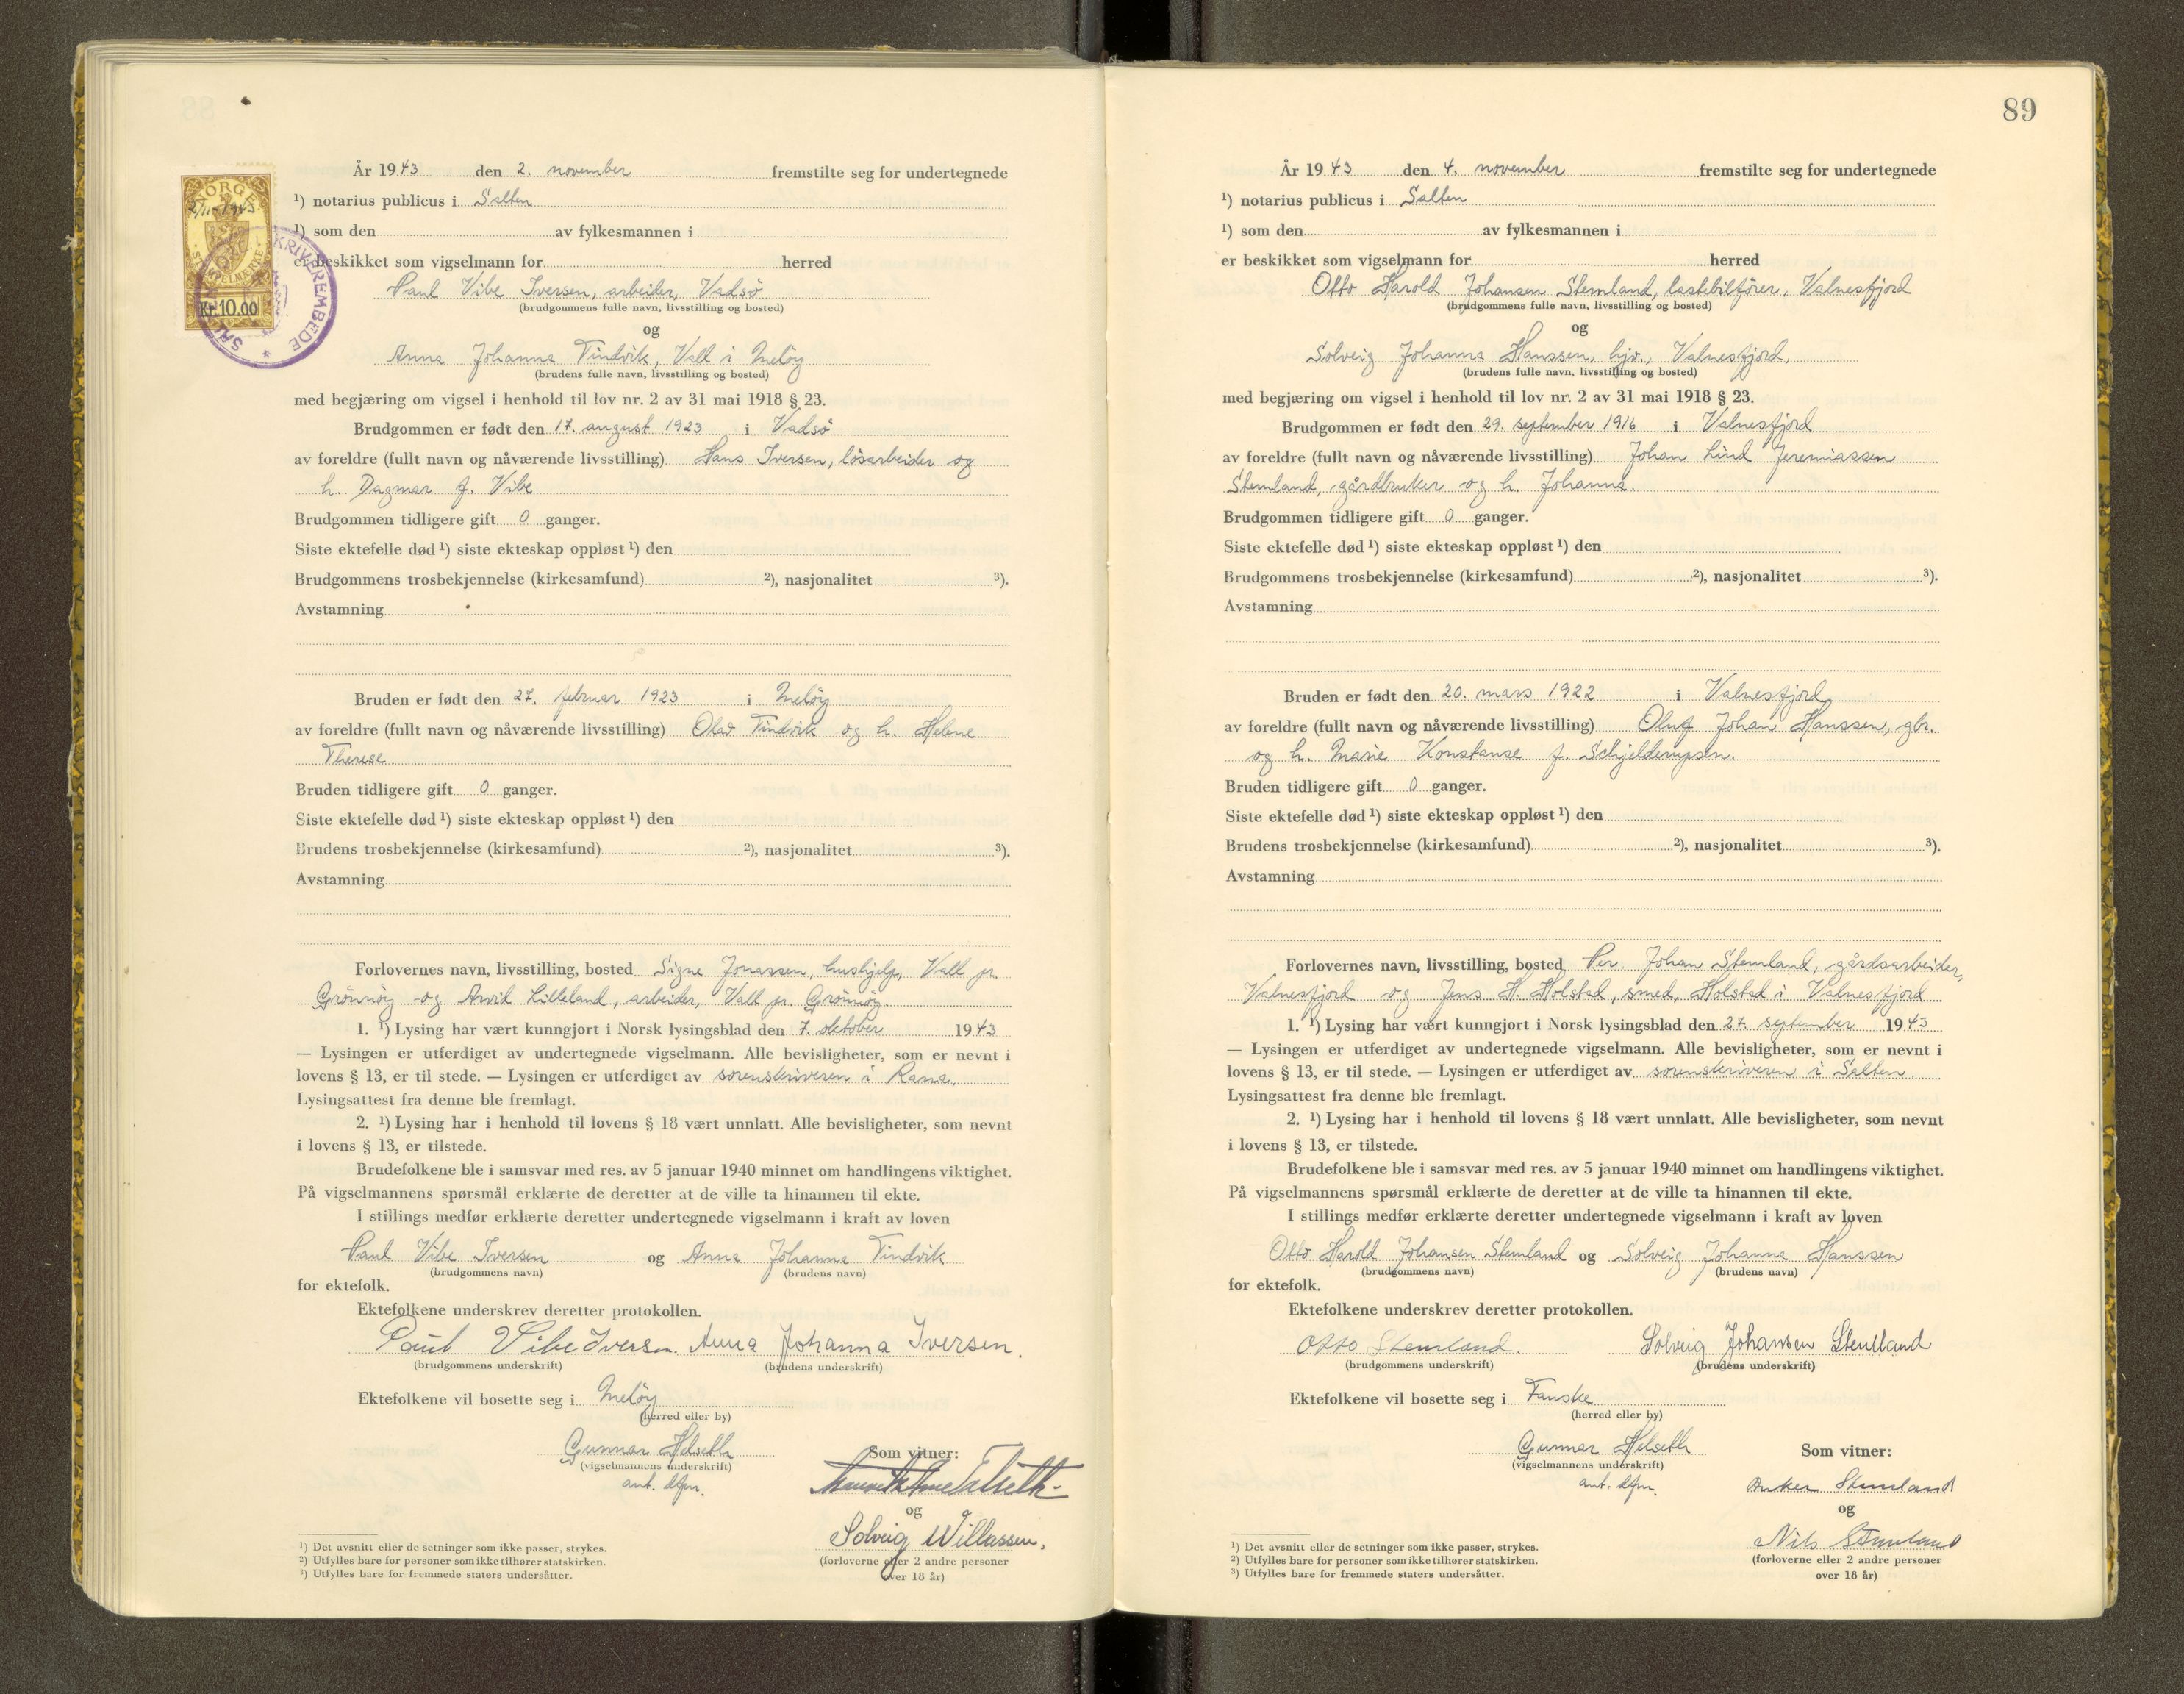 År 1943 den 2. november fremstilte seg for undertegnede
¹) notarius publicus i Salten
¹) som den av fylkesmannen i
er beskikket som vigselmann for herred
Paul Vibe Iversen, arbeider, Vadsö
(brudgommens fulle navn, livsstilling og bosted)
og
Anna Johanna Tindvik, Vall i Melöy
(brudens fulle navn, livsstilling og bosted)
med begjæring om vigsel i henhold til lov nr. 2 av 31 mai 1918 § 23.
Brudgommen er født den 17. august 1923 i Vadsö
av foreldre (fullt navn og nåværende livsstilling) Hans Iversen, lösarbeider og
h. Dagmar f. Vibe
Brudgommen tidligere gift 0 ganger.
Siste ektefelle død ¹) siste ekteskap oppløst ¹) den
Brudgommens trosbekjennelse (kirkesamfund) ²), nasjonalitet ³).
Avstamning
Bruden er født den 27. februar 1923 i Melöy
av foreldre (fullt navn og nåværende livsstilling) Olav Tindvik og h. Helene
Therese
Bruden tidligere gift 0 ganger.
Siste ektefelle død ¹) siste ekteskap oppløst ¹) den
Brudens trosbekjennelse (kirkesamfund) ²), nasjonalitet ³).
Avstamning
Forlovernes navn, livsstilling, bosted Signe Jonassen, hushjelp, Vall pr.
Grönnöy og Arvid Lilleland, arbeider, Vall pr. Grönnöy.
1. ¹) Lysing har vært kunngjort i Norsk lysingsblad den 7. oktober 1943
— Lysingen er utferdiget av undertegnede vigselmann. Alle bevisligheter, som er nevnt i
lovens § 13, er til stede. — Lysingen er utferdiget av sorenskriveren i Rana.
Lysingsattest fra denne ble fremlagt.
2. ¹) Lysing har i henhold til lovens § 18 vært unnlatt. Alle bevisligheter, som nevnt
i lovens § 13, er tilstede.
Brudefolkene ble i samsvar med res. av 5 januar 1940 minnet om handlingens viktighet.
På vigselmannens spørsmål erklærte de deretter at de ville ta hinannen til ekte.
I stillings medfør erklærte deretter undertegnede vigselmann i kraft av loven
Paul Vibe Iversen og Anna Johanna Tindvik
(brudgommens navn) (brudens navn)
for ektefolk.
Ektefolkene underskrev deretter protokollen.
Paul Vibe Iversen. Anna Johanna Iversen.
(brudgommens underskrift) (brudens underskrift)
Ektefolkene vil bosette seg i Melöy
(herred eller by)
Gunnar Helseth Som vitner:
(vigselmannens underskrift)
aut. dfm.
og
Solveig Willassen.
(forloverne eller 2 andre personer
over 18 år)
¹) Det avsnitt eller de setninger som ikke passer, strykes.
²) Utfylles bare for personer som ikke tilhører statskirken.
³) Utfylles bare for fremmede staters undersåtter.
NORGE
2/11-1943
STEMPELMERKE
Kr. 10.00
SALTEN SORENSKRIVEREMBEDE
89
År 1943 den 4. november fremstilte seg for undertegnede
¹) notarius publicus i Salten
¹) som den av fylkesmannen i
er beskikket som vigselmann for herred
Otto Harold Johansen Stemland, lastebilfører, Valnesfjord
(brudgommens fulle navn, livsstilling og bosted)
og
Solveig Johanna Hanssen, hjv., Valnesfjord,
(brudens fulle navn, livsstilling og bosted)
med begjæring om vigsel i henhold til lov nr. 2 av 31 mai 1918 § 23.
Brudgommen er født den 29. september 1916 i Valnesfjord
av foreldre (fullt navn og nåværende livsstilling) Johan Lind Jeremiassen
Stemland, gårdbruker og h. Johanna.
Brudgommen tidligere gift 0 ganger.
Siste ektefelle død ¹) siste ekteskap oppløst ¹) den
Brudgommens trosbekjennelse (kirkesamfund) ²), nasjonalitet ³).
Avstamning
Bruden er født den 20. mars 1922 i Valnesfjord
av foreldre (fullt navn og nåværende livsstilling) Oluf Johan Hanssen, gbr.
og h. Marie Konstanse f. Schjelderupsen.
Bruden tidligere gift 0 ganger.
Siste ektefelle død ¹) siste ekteskap oppløst ¹) den
Brudens trosbekjennelse (kirkesamfund) ²), nasjonalitet ³).
Avstamning
Forlovernes navn, livsstilling, bosted Per Johan Stemland, gårdsarbeider,
Valnesfjord og Jens H. Holstad, smed, Holstad i Valnesfjord
1. ¹) Lysing har vært kunngjort i Norsk lysingsblad den 27. september 1943
— Lysingen er utferdiget av undertegnede vigselmann. Alle bevisligheter, som er nevnt i
lovens § 13, er til stede. — Lysingen er utferdiget av sorenskriveren i Salten.
Lysingsattest fra denne ble fremlagt.
2. ¹) Lysing har i henhold til lovens § 18 vært unnlatt. Alle bevisligheter, som nevnt
i lovens § 13, er tilstede.
Brudefolkene ble i samsvar med res. av 5 januar 1940 minnet om handlingens viktighet.
På vigselmannens spørsmål erklærte de deretter at de ville ta hinannen til ekte.
I stillings medfør erklærte deretter undertegnede vigselmann i kraft av loven
Otto Harold Johansen Stemland og Solveig Johanna Hanssen
(brudgommens navn) (brudens navn)
for ektefolk.
Ektefolkene underskrev deretter protokollen.
Otto Stemland. Solveig Johansen Stemland
(brudgommens underskrift) (brudens underskrift)
Ektefolkene vil bosette seg i Fauske
(herred eller by)
Gunnar Helseth Som vitner:
(vigselmannens underskrift)
aut. dfm. Anker Stemland
og
Nils Stemland
(forloverne eller 2 andre personer
over 18 år)
¹) Det avsnitt eller de setninger som ikke passer, strykes.
²) Utfylles bare for personer som ikke tilhører statskirken.
³) Utfylles bare for fremmede staters undersåtter.